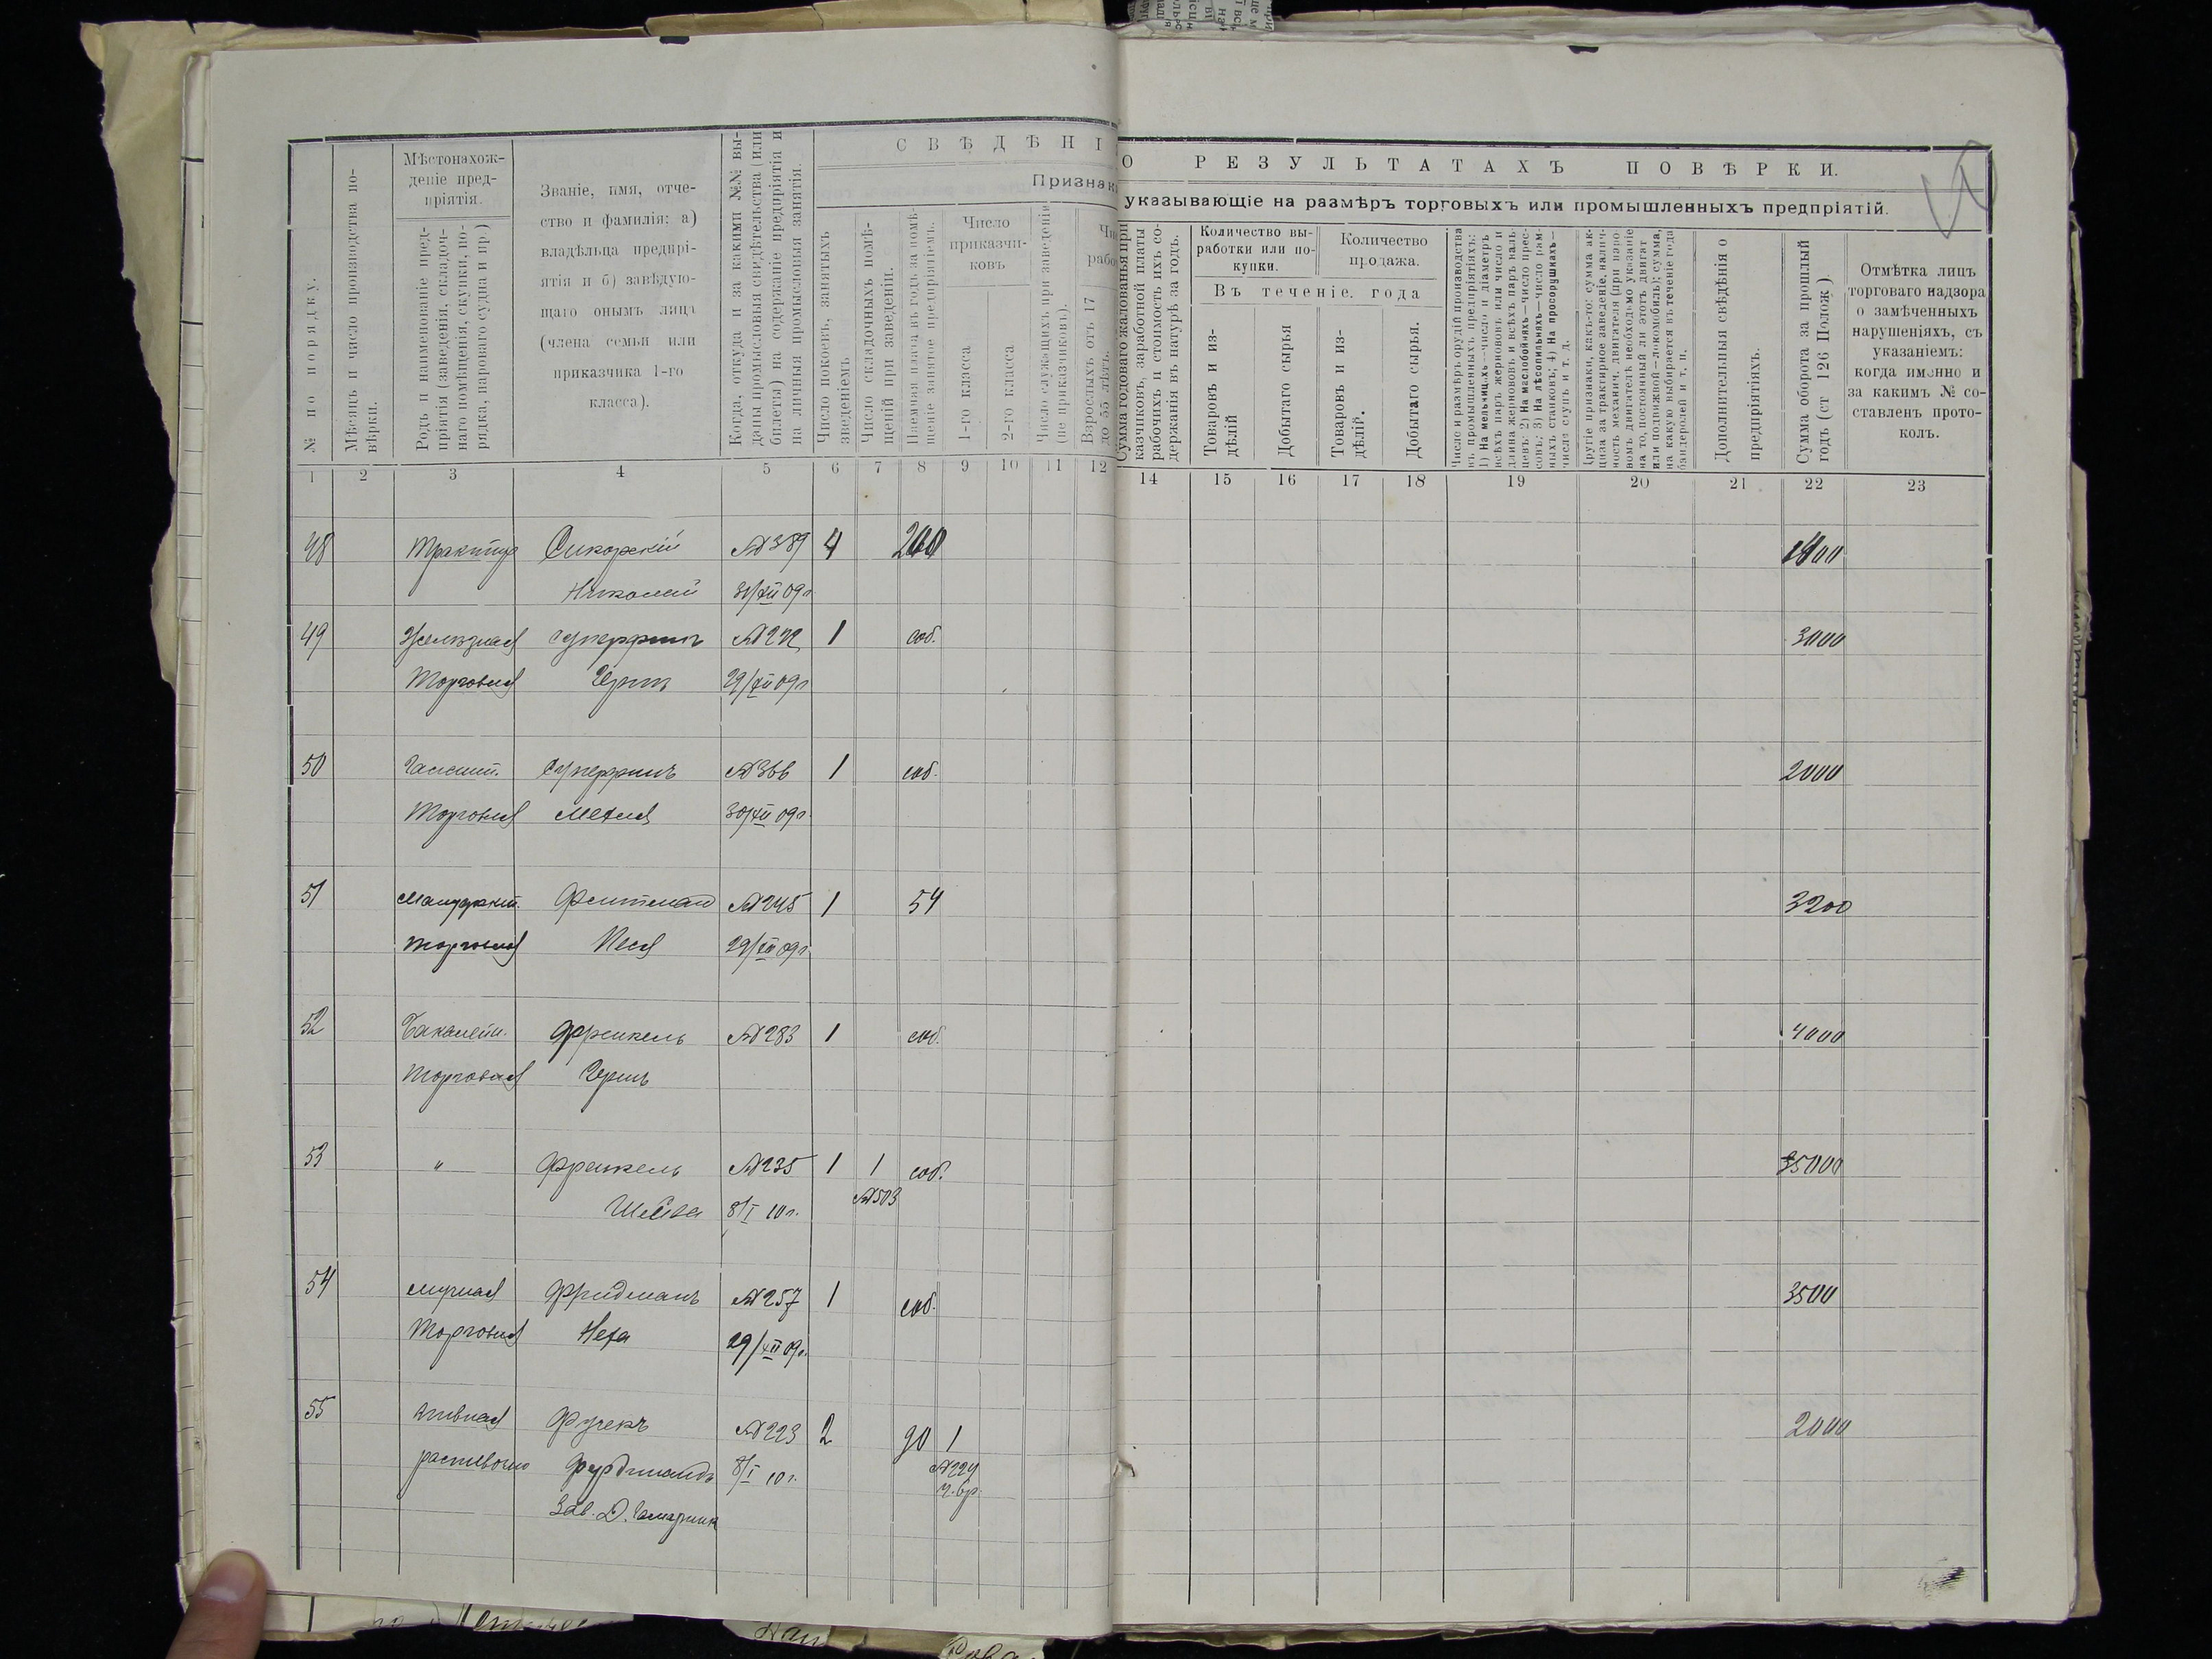 СВѢДѢНІ
О РЕЗУЛЬТАТАХЪ ПОВѢРКИ.
Признак
указывающіе на размѣръ торговыхъ или промышленныхъ предпріятій.
№ по порядку.
Мѣсяцъ и число производства по-
вѣрки.
Мѣстонахож-
деніе пред-
пріятія.
Родъ и наименованіе пред-
пріятія (заведенія, складоч-
наго помѣщенія, скупки, по-
рядка, пароваго судна и пр )
Званіе, имя, отче-
ство и фамилія: а)
владѣльца предпрі-
ятія и б) завѣдую-
щаго онымъ лица
(члена семьи или
приказчика 1-го
класса).
Когда, откуда и за какими №№ вы-
даны промысловыя свидѣтельства (или
билеты) на содержаніе предпріятія и
на личныя промысловыя занятія.
Число покоевъ, занятыхъ
зведеніемъ
Число складочныхъ помѣ-
щеній при заведеніи.
Наемная плата въ годъ за помѣ-
щеніе занятое предпріятіемъ.
Число
приказчи-
ковъ
1-го класса
2-го класса
Число служащихъ при заведеніи
(не приказчиковъ).
Взрослыхъ отъ 17
до 55 лѣтъ.
Сумма годоваго жалованья при
казчиковъ, заработной платы
рабочихъ и стоимость ихъ со-
держанія въ натурѣ за годъ.
Количество вы-
работки или по-
купки.
Количество
продажа.
Въ теченіе. года
Товаровъ и из-
дѣлій
Добытаго сырья
Товаровъ и из-
дѣлій.
Добытаго сырья.
Число и размѣръ орудій производства
въ промышленныхъ предпріятіяхъ:
1) На мельницахъ—число и діаметръ
всѣхъ паръ жернововъ или число и
длина жернововъ и всѣхъ паръ валь-
цевъ: 2) На маслобойняхъ—число прес-
совъ; 3) На лѣсопильняхъ—число рам-
ныхъ станковъ; 4) На просорушкахъ—
числя ступъ и т. д.
Другіе признаки, какъ-то: сумма ак-
циза за трактирное заведеніе, налич-
ность механич. двигателя (при паро-
вомъ двигателѣ необходимо указаніе
на то, постоянный ли этотъ двигат
или подвижной—локомобиль); сумма,
на какую выбирается въ теченіе года
бандеролей и т. п.
Дополнительныя свѣдѣнія о
предпріятіяхъ.
Сумма оборота за прошлый
годъ (ст 126 Полож )
Отмѣтка лицъ
торговаго надзора
о замѣченныхъ
нарушеніяхъ, съ
указаніемъ:
когда именно и
за какимъ № со-
ставленъ прото-
колъ.
1 2 3 4 5 6 7 8 9 10 11 12 14 15 16 17 18 19 20 21 22 23
48 Трактир Сикорскій №389 4 200
Николай 31/XII 09г.
49 Желѣзная Суперфинъ №272 1 соб. 3000
Торговля Герш 29/XII 09г.
50 Галант. Суперфинъ №366 1 соб. 2000
Торговля Мехля 30/XII 09г.
51 Мануфакт. Флитман №245 1 54 3200
торговля Песя 29/XII 09г.
52 Бакалейн. Френкель №283 1 соб. 4000
Торговля Гершъ
53 " Френкель №235 1 1 соб. 35000
Шейва 8/I 10г. №503
54 мучная Фридманъ №257 1 соб. 3500
Торговля Неха 29/XII 09г.
55 пивная Фучекъ №223 2 90 1 2000
распивочно Фурдинандъ 8/I 10г. №224
Зав. Д. Гамарник